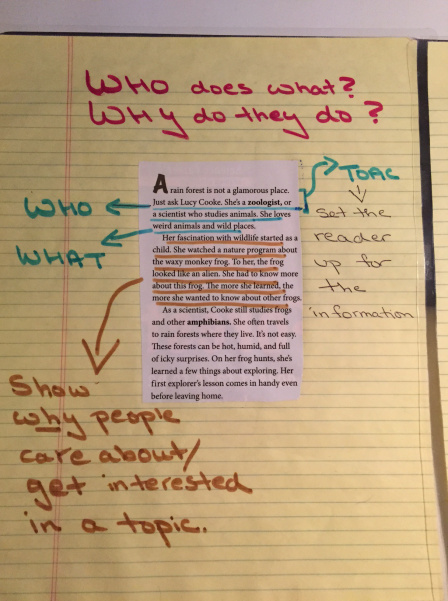 WHO does what?
WHY do they do?
WHO
WHAT
A rain forest is not a glamorous place.
Just ask Lucy Cooke. She's a zoologist, or
a scientist who studies animals. She loves
weird animals and wild places.
Her fascination with wildlife started as a
child. She watched a nature program about
the waxy monkey frog. To her, the frog
looked like an alien. She had to know more
about this frog. The more she learned, the
more she wanted to know about other frogs.
As a scientist, Cooke still studies frogs
and other amphibians. She often travels
to rain forests where they live. It's not easy.
These forests can be hot, humid, and full
of icky surprises. On her frog hunts, she's
learned a few things about exploring. Her
first explorer's lesson comes in handy even
before leaving home.
set the
reader
up for
the
information
Show
why people
care about/
get interested
in a topic.